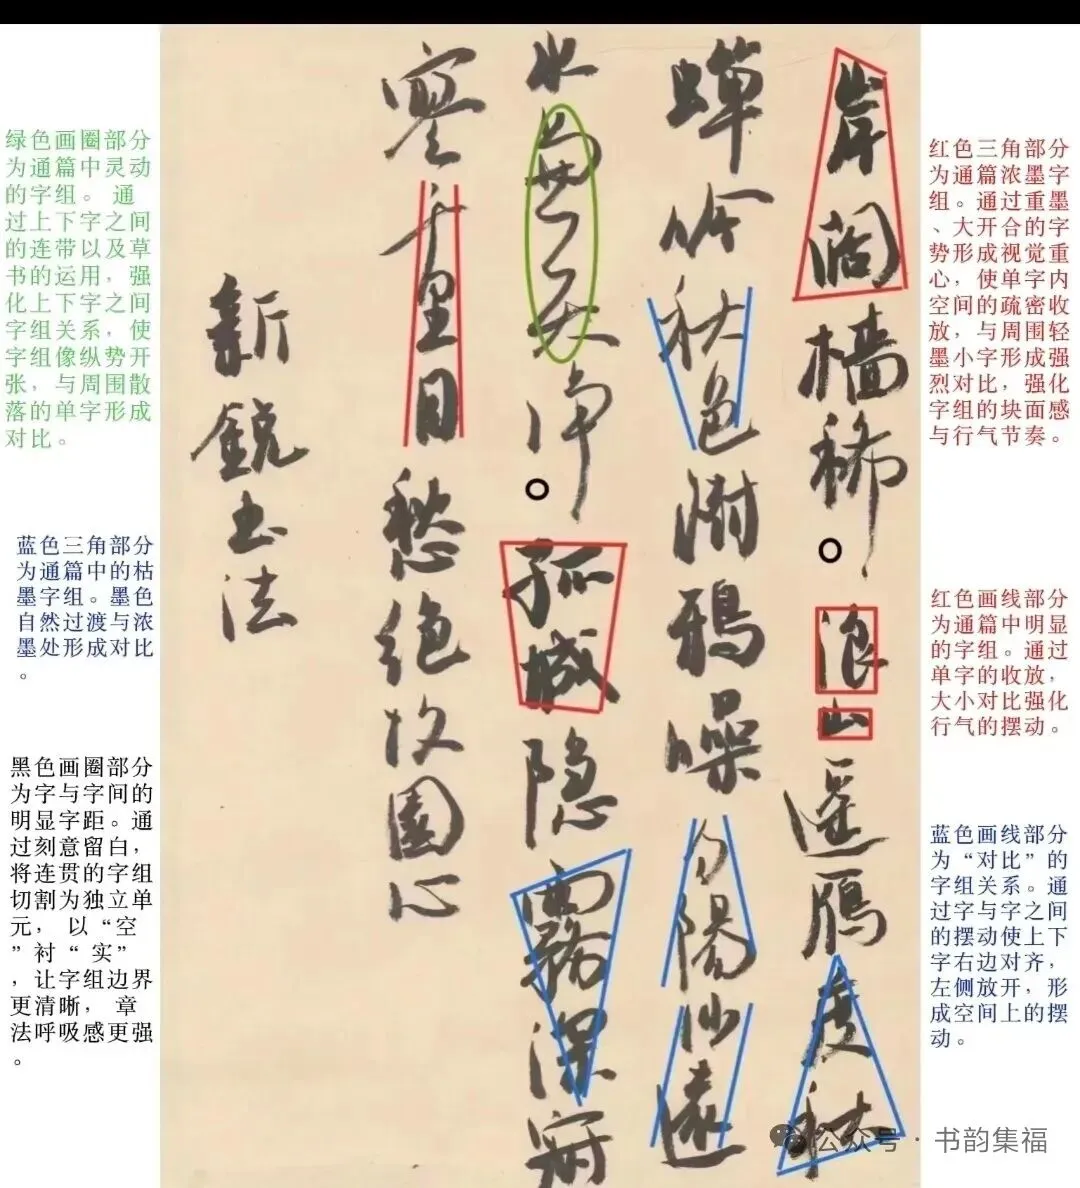 绿色画圈部分
为通篇中灵动
的字组。 通
过上下字之间
的连带以及草
书的运用，强
化上下字之间
字组关系，使
字组像纵势开
张，与周围散
落的单字形成
对比。
蓝色三角部分
为通篇中的枯
墨字组。墨色
自然过渡与浓
墨处形成对比
。
黑色画圈部分
为字与字间的
明显字距。通
过刻意留白，
将连贯的字组
切割为独立单
元， 以“空
”衬“ 实”
，让字组边界
更清晰， 章
法呼吸感更强
。
岸阔檣稀浪山遥鴈度秋
蟬吟秋色樹鴉噪夕陽沙遠
水兼天净孤城隐霧深寂
寥千里目愁絕故園心
新銳书法
红色三角部分
为通篇浓墨字
组。通过重墨
、大开合的字
势形成视觉重
心，使单字内
空间的疏密收
放，与周围轻
墨小字形成强
烈对比，强化
字组的块面感
与行气节奏。
红色画线部分
为通篇中明显
的字组。通过
单字的收放，
大小对比强化
行气的摆动。
蓝色画线部分
为“对比”的
字组关系。通
过字与字之间
的摆动使上下
字右边对齐，
左侧放开，形
成空间上的摆
动。
公众号·书韵集福